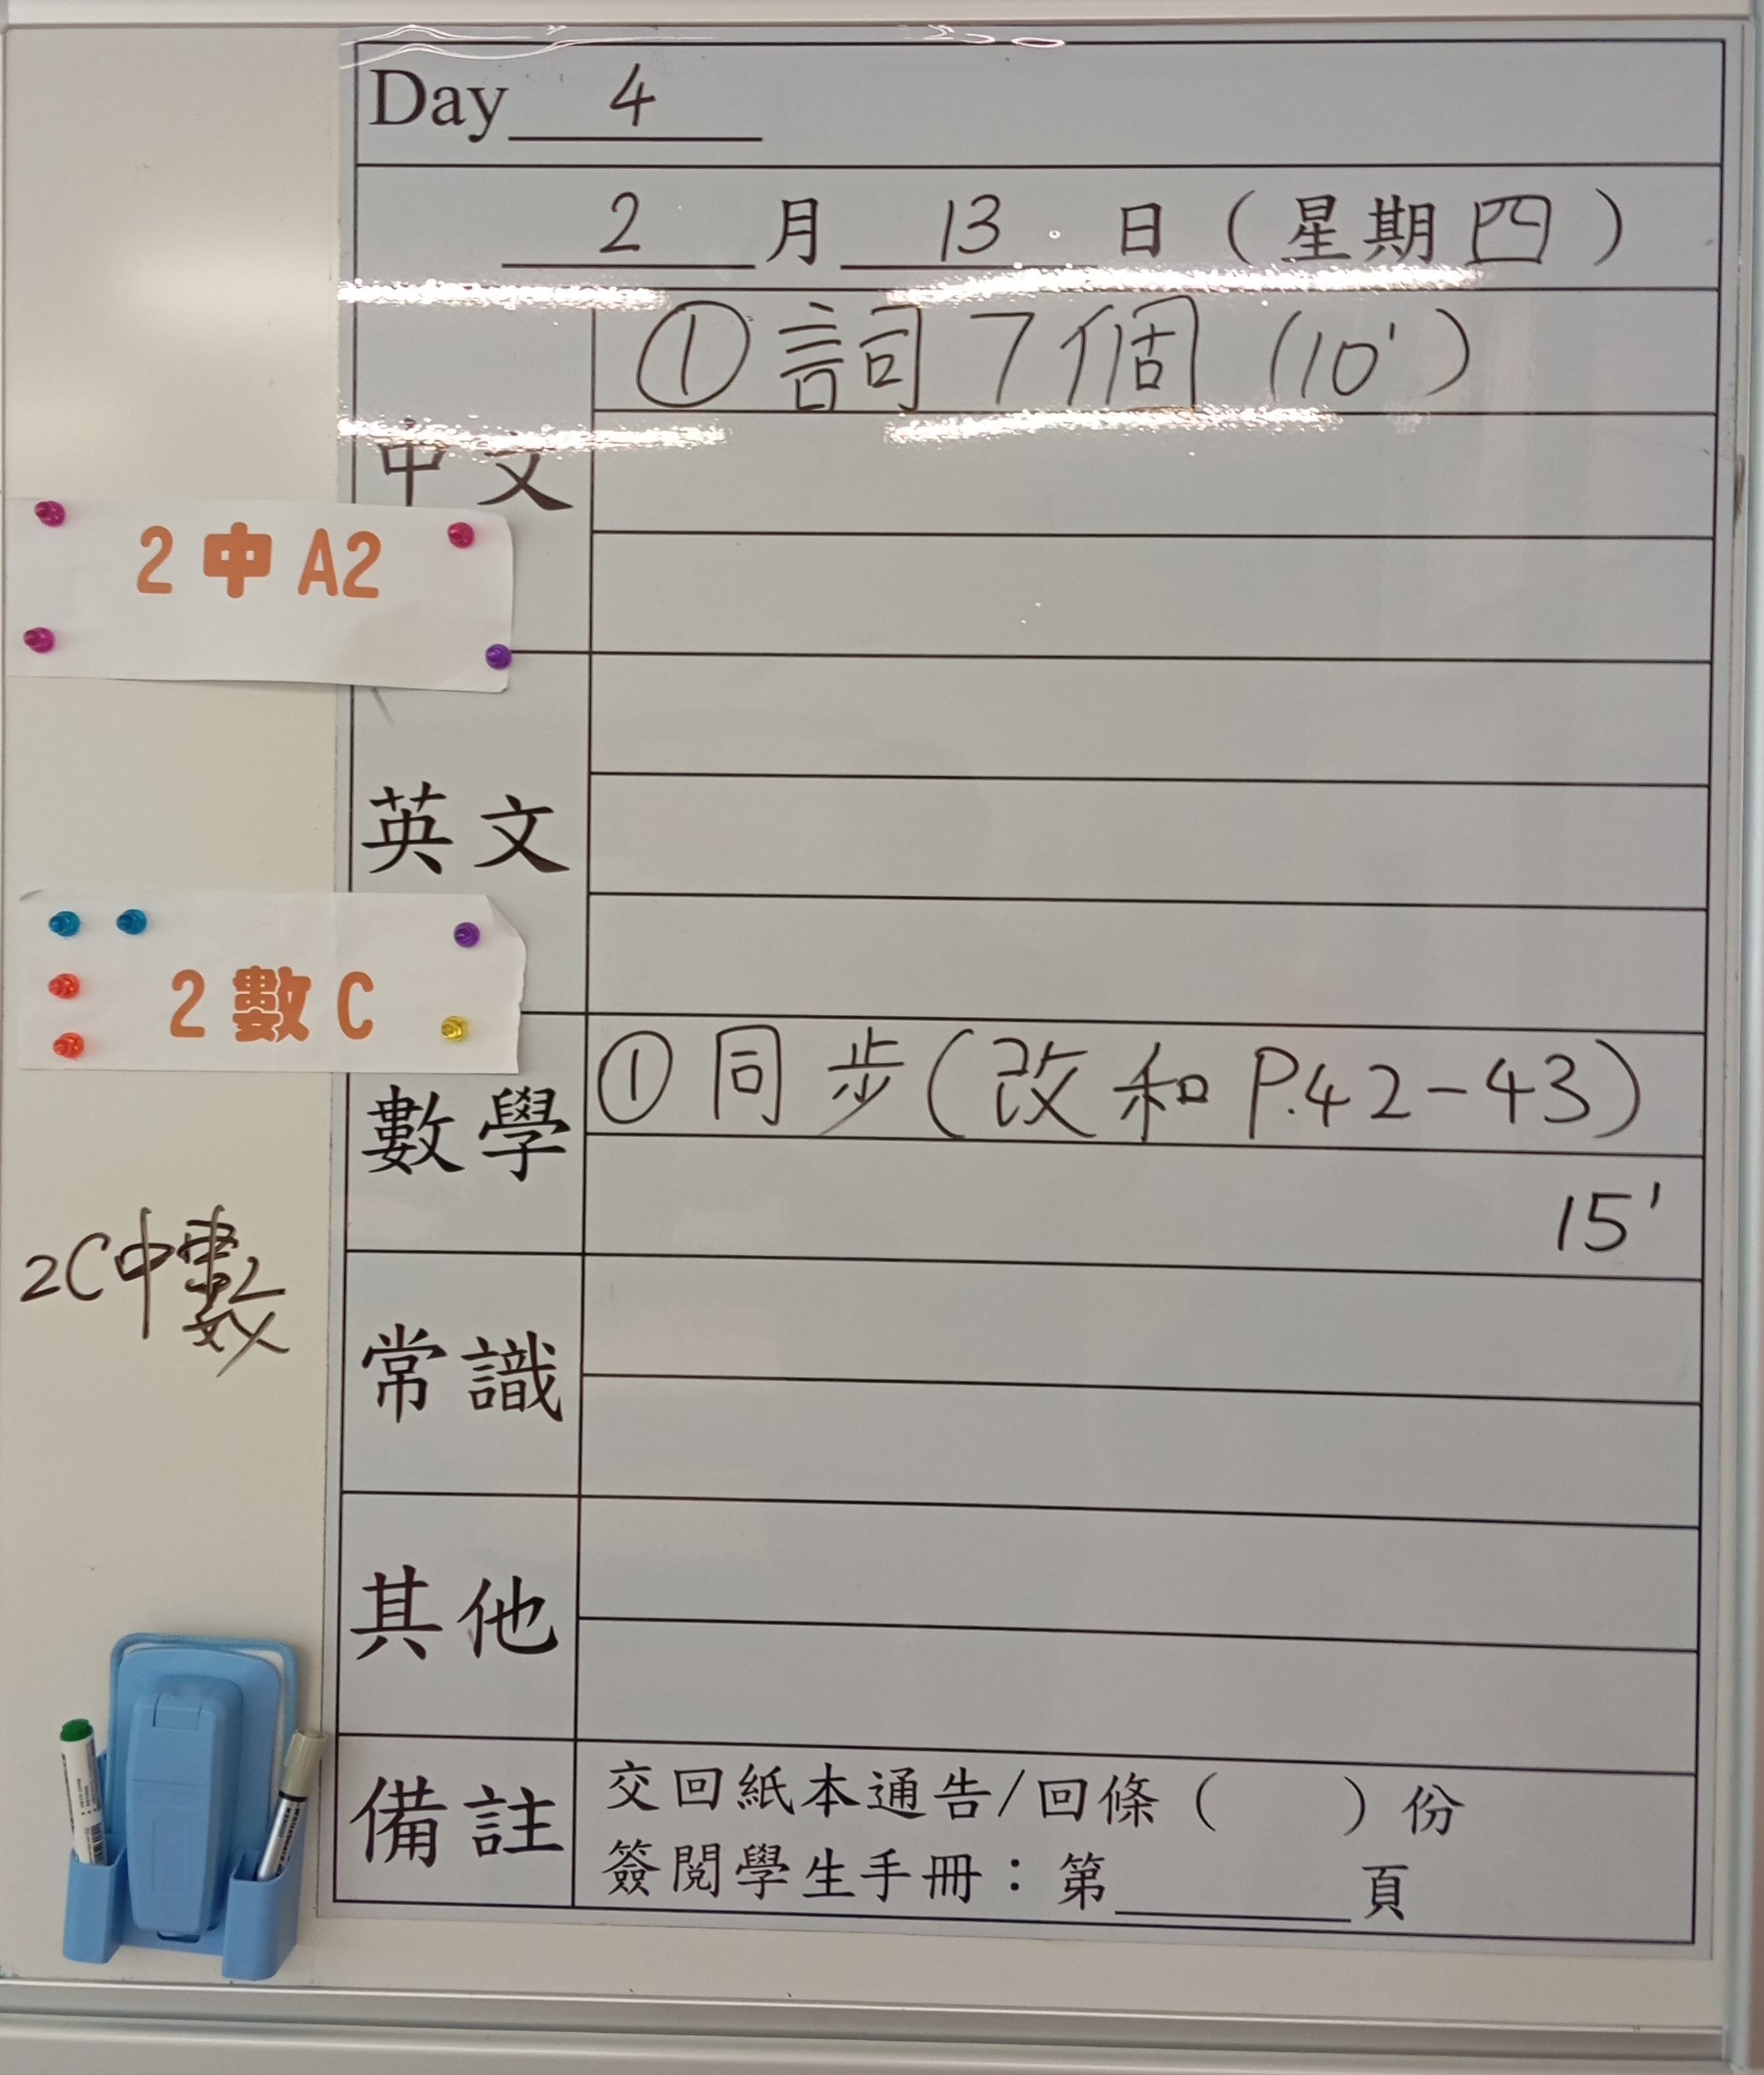 Day 4
2 月 13 日 (星期四)
中文
① 詞7個 (10')
2 中 A2
英文
2 數 C
數學
① 同步(改和 P.42-43)
15'
2C中數
常識
其他
備註
交回紙本通告/回條( )份
簽閱學生手冊：第______頁